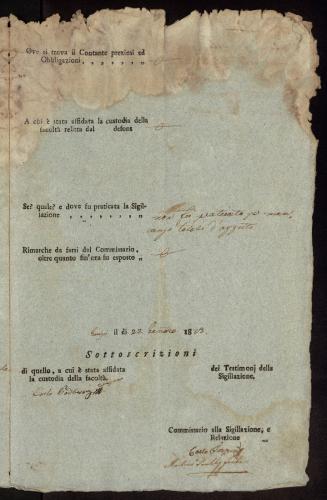 Ove si trova il Contante preziosi ed
Obbligazioni , , , , , , ,
A chi è stata affidata la custodia della
facoltà relitta dal defonto
Se? quale? e dove fu praticata la Sigil-
lazione , , , , , , , non fu praticata per man-
canza totale d'oggetti
Rimarche da farsi dal Commissario,
oltre quanto fin'ora fu esposto „
il dì 22 1813.
Sottoscrizioni
di quello, a cui è stata affidata
la custodia della facoltà.
dei Testimonj della
Sigillazione.
Carlo
Commissario alla Sigillazione, e
Relazione „
Carlo